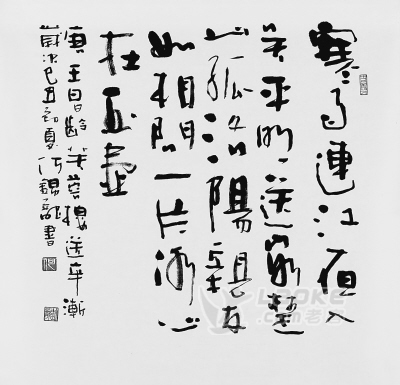 寒雨連江夜入
吴平明送客楚
山孤洛陽親友
如相問一片冰心
在玉壶
唐王昌齡芙蓉樓送辛漸
歲次己丑初夏何錫書